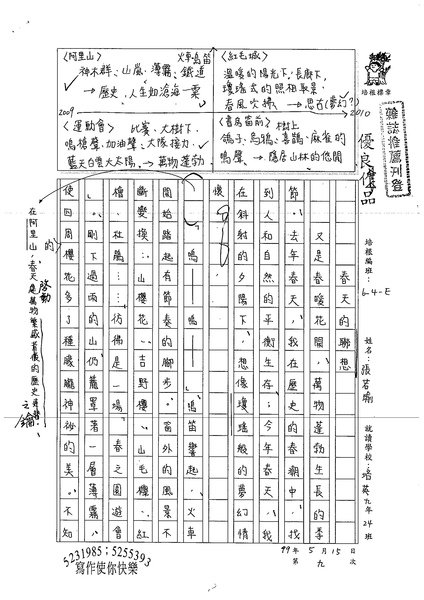 〈阿里山〉 火車鳴笛
神木群、山嵐、薄霧、鐵道
→歷史、人生如滄海一粟
〈紅毛城〉
溫暖的陽光下、長廊下、
春風吹拂→思古(夢幻?)
2009
2010
〈運動會〉 比賽、大樹下、
鳴槍聲、加油聲、大隊接力、
藍天白雲大太陽、→萬物蓬勃
〈書鳥當前〉樹上
鴿子、烏鴉、喜鵲、麻雀的
鳴聲、→隱居山林的悠閒
培根標章
雜誌推薦刊登
優良作品
培根編班:6-4-E
姓名:張若瑜
就讀學校:培英九年24班
99年5月15日
第九次
春天的聯想
又是春暖花開、萬物蓬勃生長的季
節。去年春天,我在歷史的春潮中,找
到自己。然而,生存今年春天,我
在斜射的夕陽下,想像瓊瑤般的夢幻情
懷。
「嗚——嗚——」笛聲響起,火車
開始踏著有節奏的腳步。窗外的風景不
斷變換,山櫻花、吉野櫻、毛櫸、紅
檜、杜鵑……彷彿是一場春之園遊會
。剛下過雨的山仍籠罩著一層薄霧,
使四周花多了種朦朧神祕的美。不知
在阿里山,春天是啟動萬物繁盛着優的歷史
之鑰。
5231985;5255393
寫作使你快樂